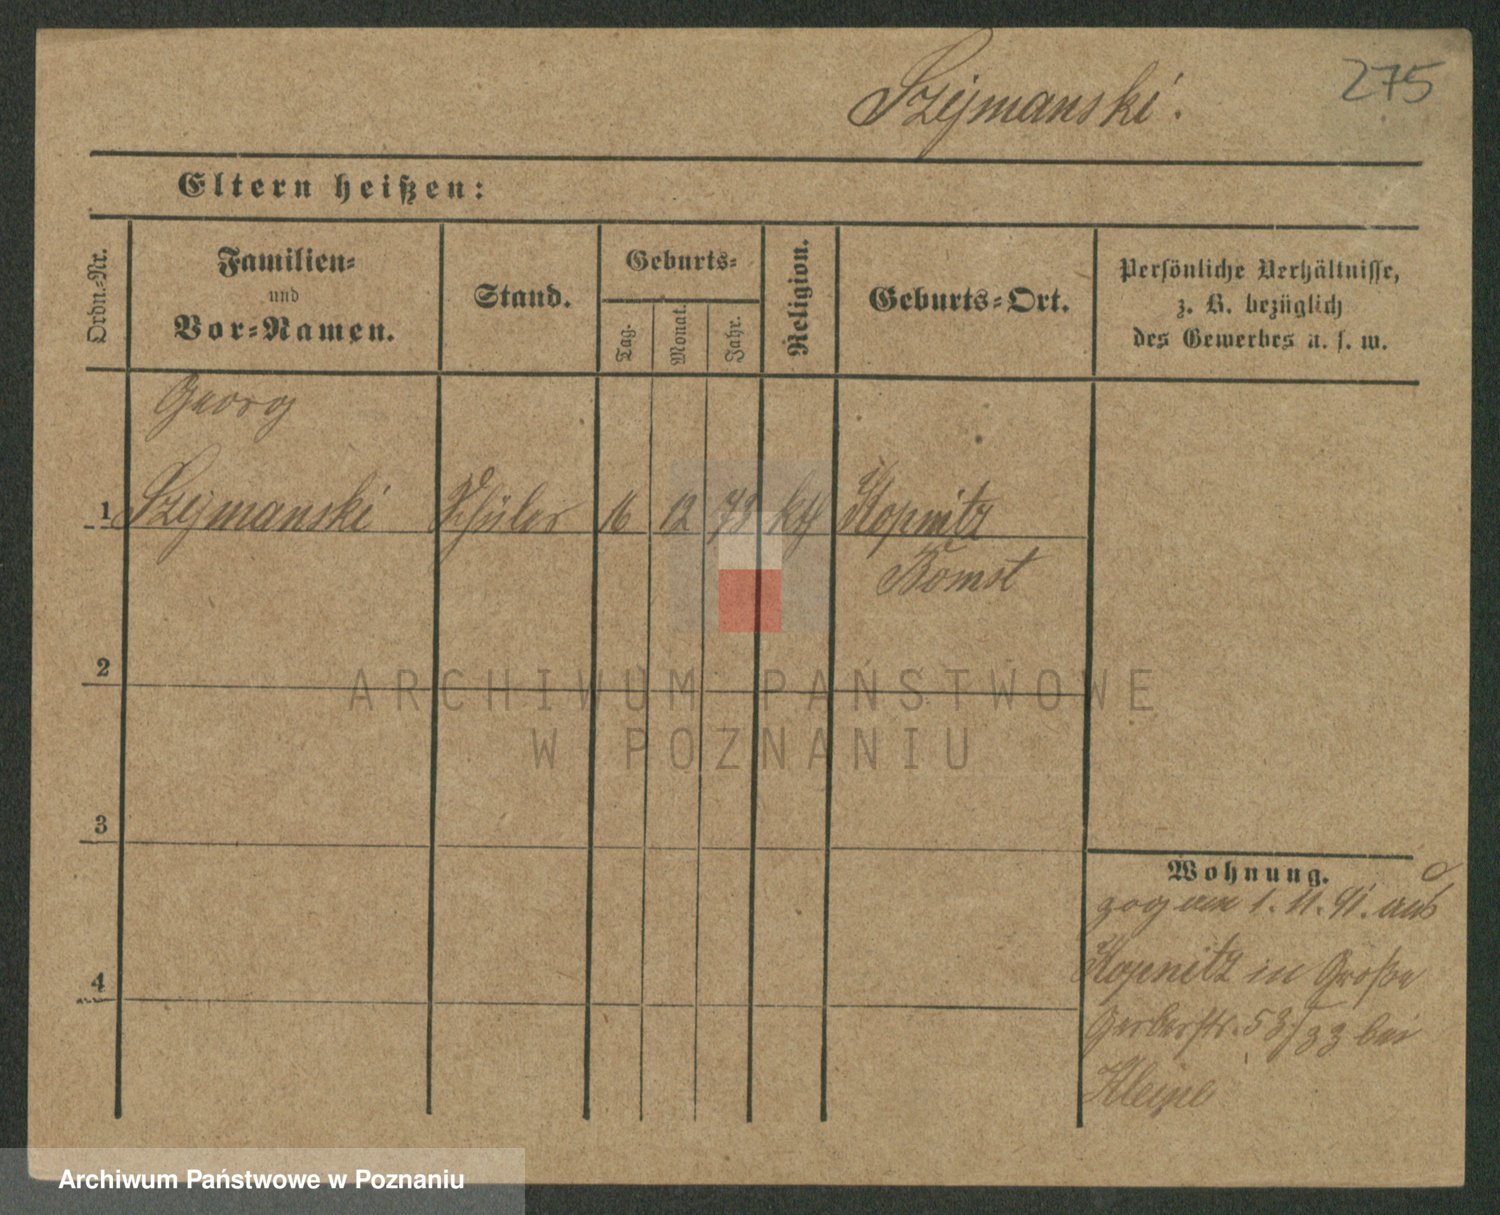 275
Szejmanski.
Eltern heißen:
Ordn.-Nr.
Familien-
und
Vor-Namen.
Stand.
Geburts-
Tag.
Monat.
Jahr.
Religion.
Geburts-Ort.
Persönliche Verhältnisse,
z. B. bezüglich
des Gewerbes u. s. w.
Georg
1 Szejmanski Schüler 16 12 73 kth Kopnitz
Bomst
2
3
4
Wohnung.
zog am 1. 11. 91. aus
Kopnitz in Große
Gerberstr. 53/33 bei
ARCHIWUM PAŃSTWOWE
W POZNANIU
Archiwum Państwowe w Poznaniu